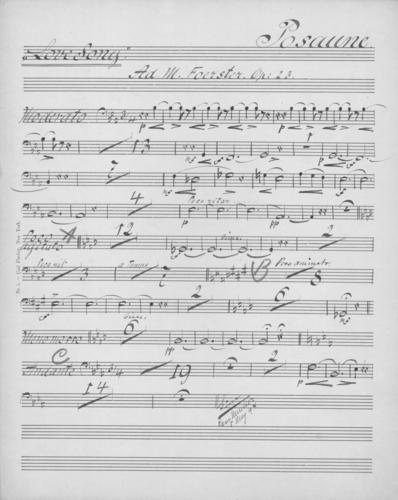 Posaune.
"Love Song."
Ad. M. Foerster. Op: 23.
Moderato
p
13
mf
p
pp
7
mf
4
Poco ritar.
p
pp
p
A
12
dim.
pp
Poco rit.
a Tempo
3
7
B
Poco animato
8
p
2
dim.
mf
Meno mosso
6
2
pp
C
Andante
4
19
2
2
p
14
2